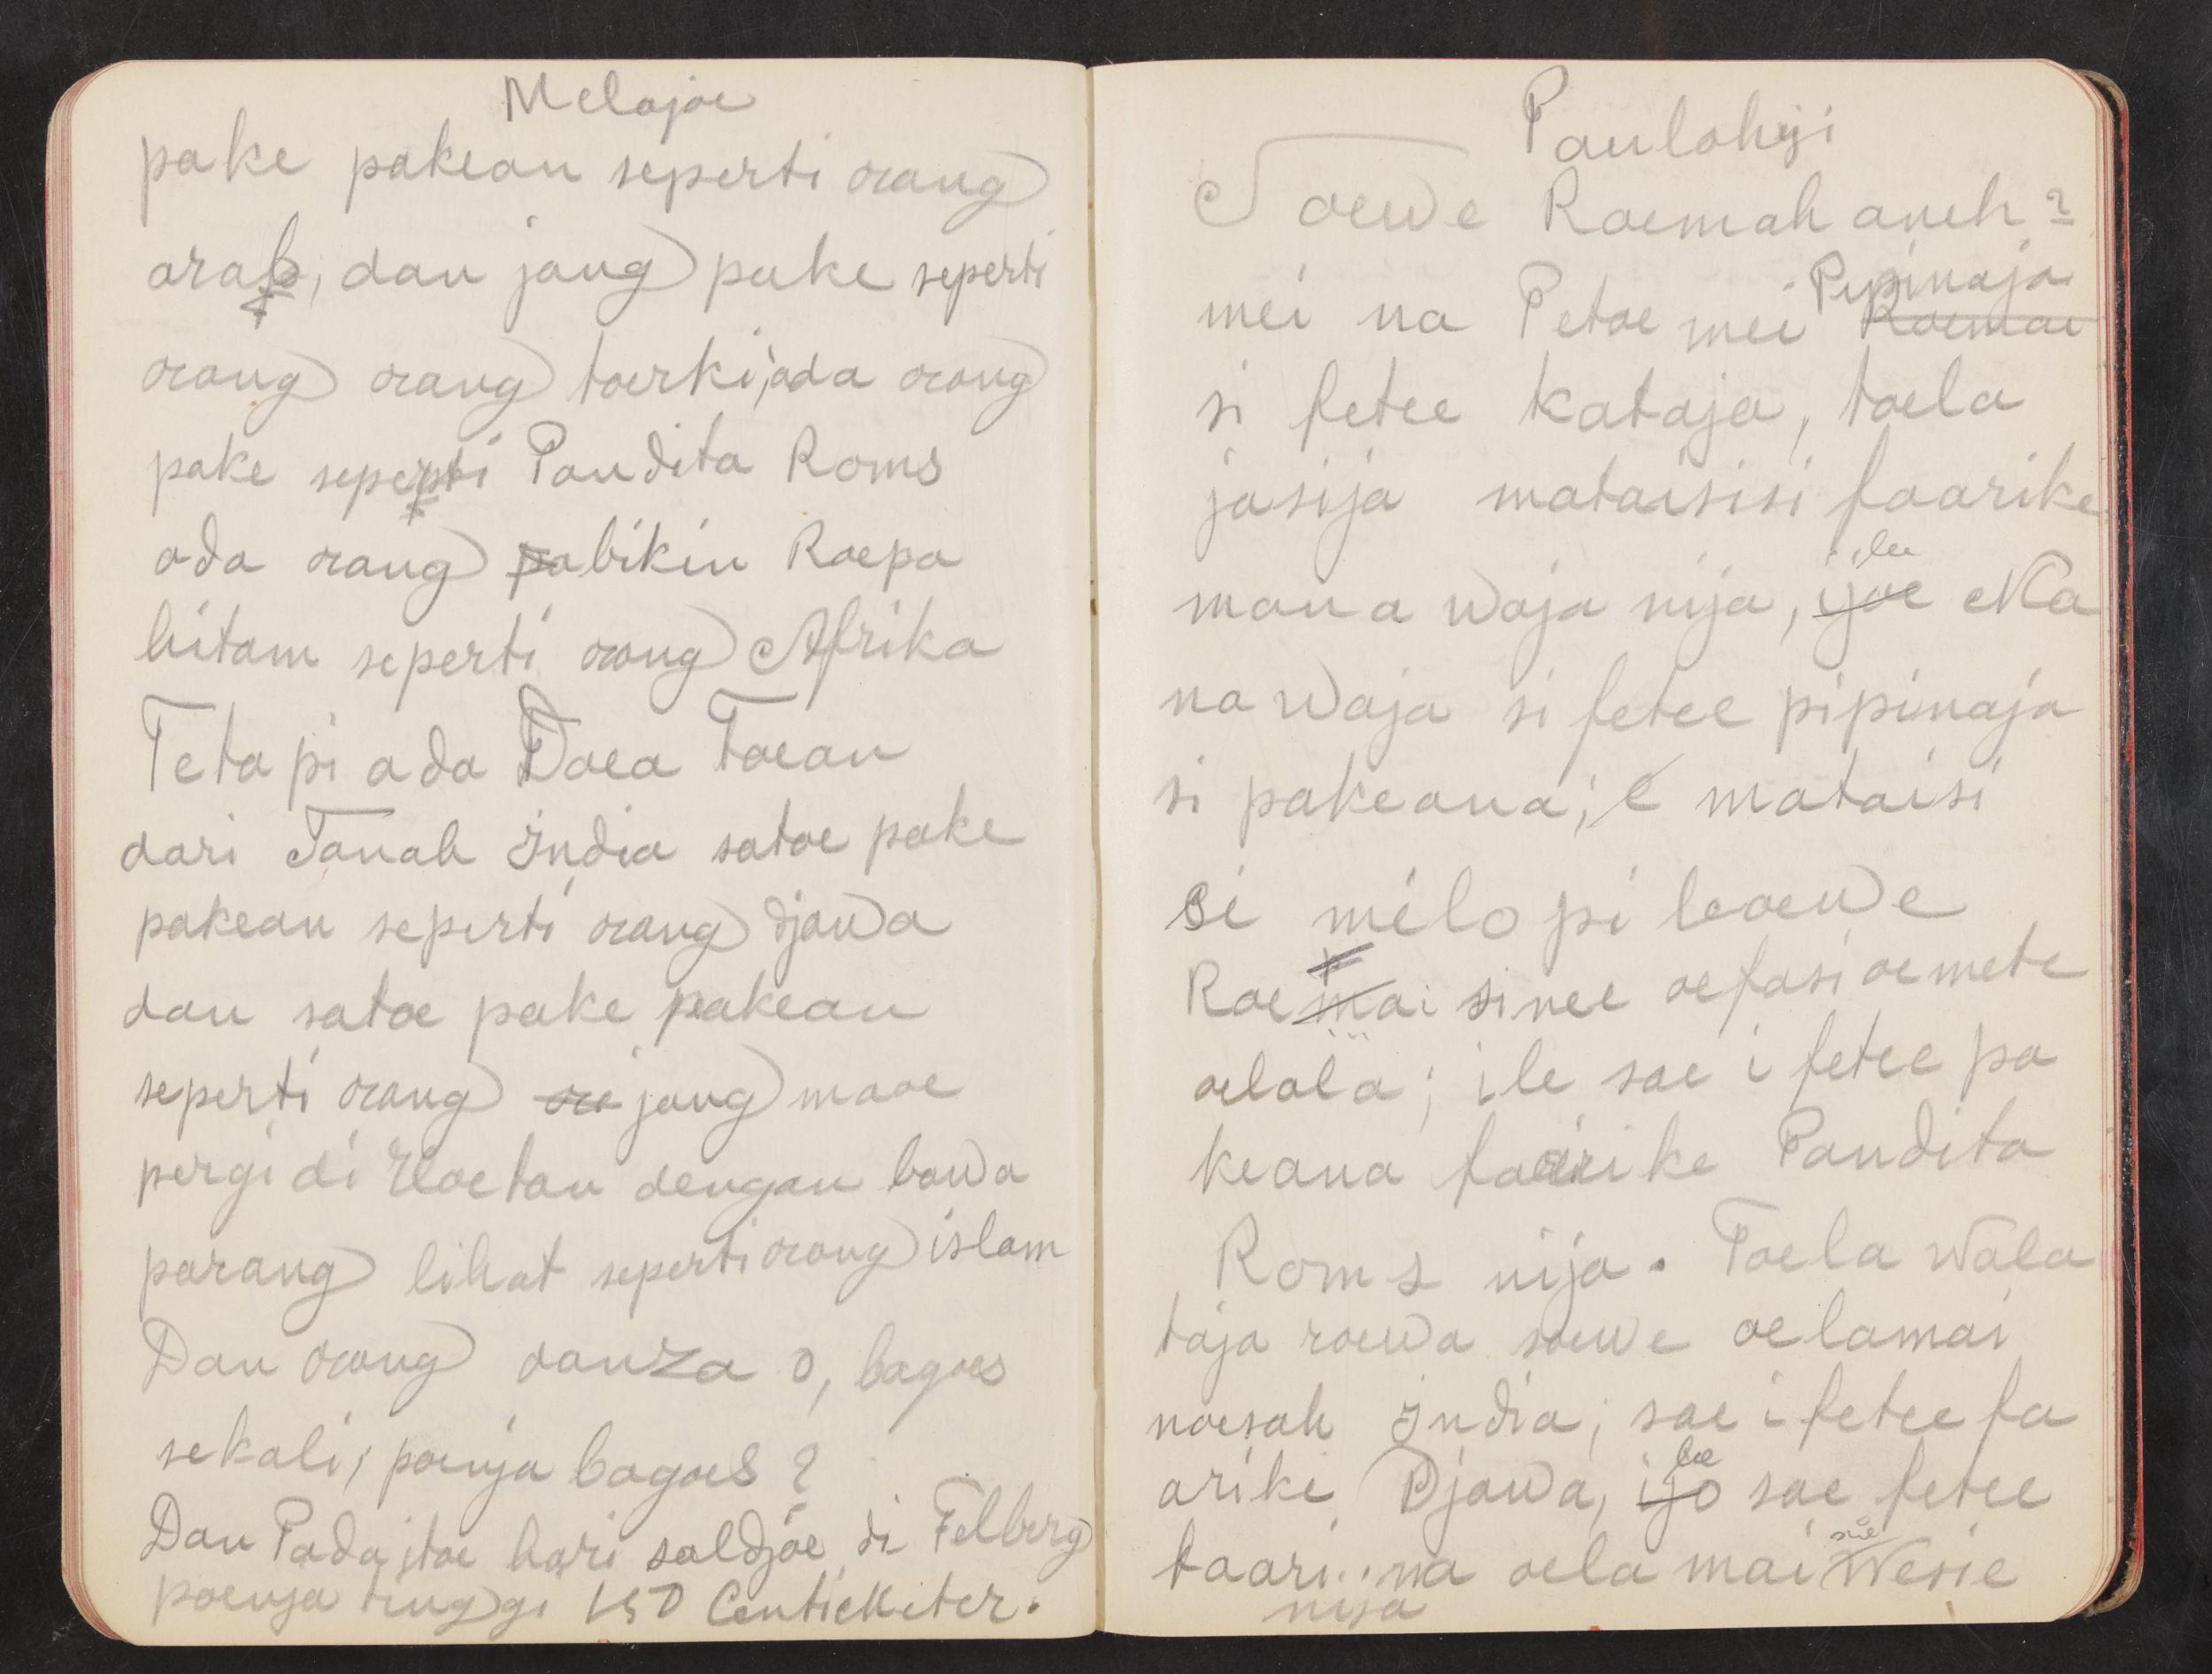 Melajoe
pake pakean seperti orang
arab, dan jang pake seperti
orang orang toerki, ada orang
pake seperti Pandita Roms
ada orang bikin Roepa
hitam seperti orang Afrika
Tetapi ada Doea Toean
dari Tanah India satoe pake
pakean seperti orang djawa
dan satoe pake pakean
seperti orang jang maoe
pergi di Hoetan dengan bawa
parang lihat seperti orang islam
Dan orang danza o, bagoes
sekali, poenja bagoes ?
Dan Pada itoe hari saldjoe di Felberg
poenja tinggi 150 CentiMeter.
Paulohiji
Soewe Roemah aneh ?
mei na Petoe mei Pipinaja
si fetee kataja, toela
jasija mataisisi faarike
mana waja nija, ile Ma
na waja si fetee pipinaja
si pakeana; e mataisi
si milo pi leoewe
Roe mai sinee oefasi oemete
oelala; ile sae i fetee pa
keana faarike Pandita
Roms nija. Toela wala
taja roewa soewe oelamai
noesah India; sae i fetee fa
arike Djawa, sae fetee
taari na oela mai Wesie
nija